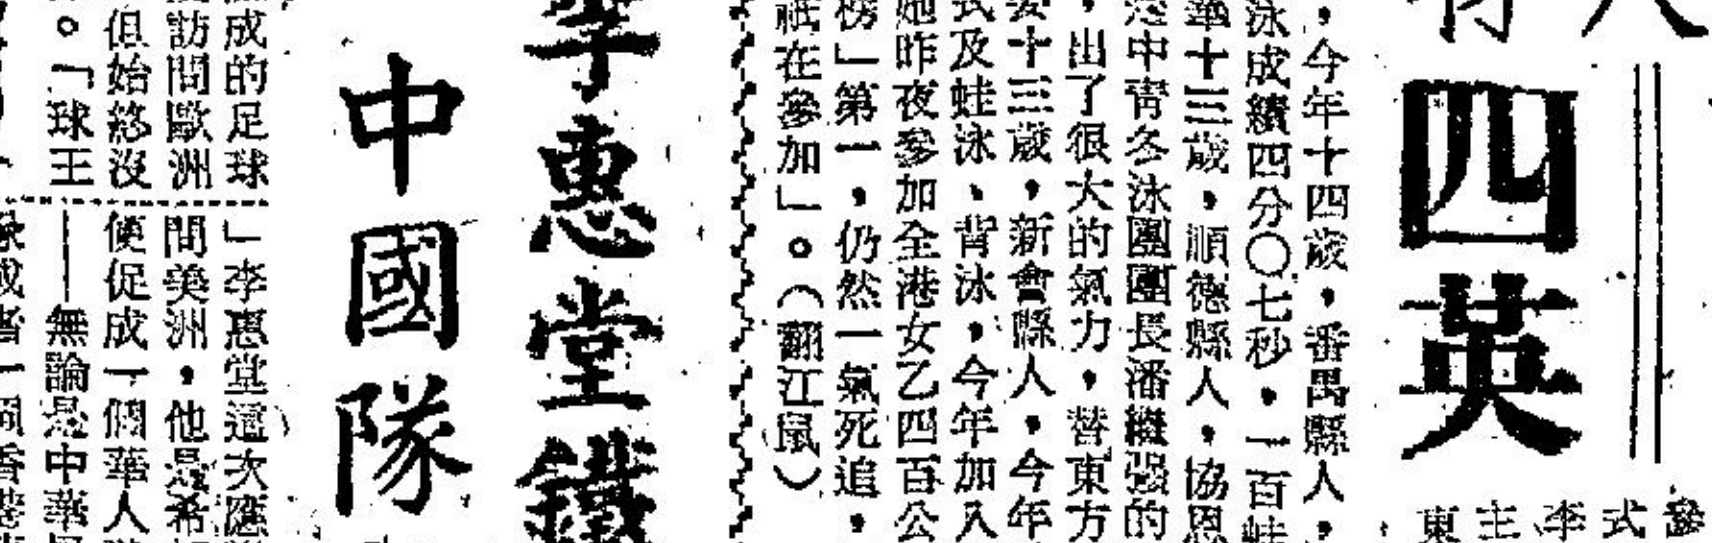 四英
，今年十四歲，番禺縣人，
泳成績四分〇七秒，一百蛙
華十三歲，順德縣人，協恩
中靑冬泳團團長潘繼强的
，出了很大的氣力，替東方
十三歲，新會縣人，今年
式及蛙泳、背泳，今年加入
她昨夜參加全港女乙四百公
榜」第一，仍然一氣死追，
祇在參加」。（翻江鼠）
李惠堂鐵
中國隊
成的足球
訪問歐洲
但始終沒
。「球王
」李惠堂這次應
問美洲，他是希
便促成一個華人
——無論是中華
或者一個香港
參
式
李
主
東